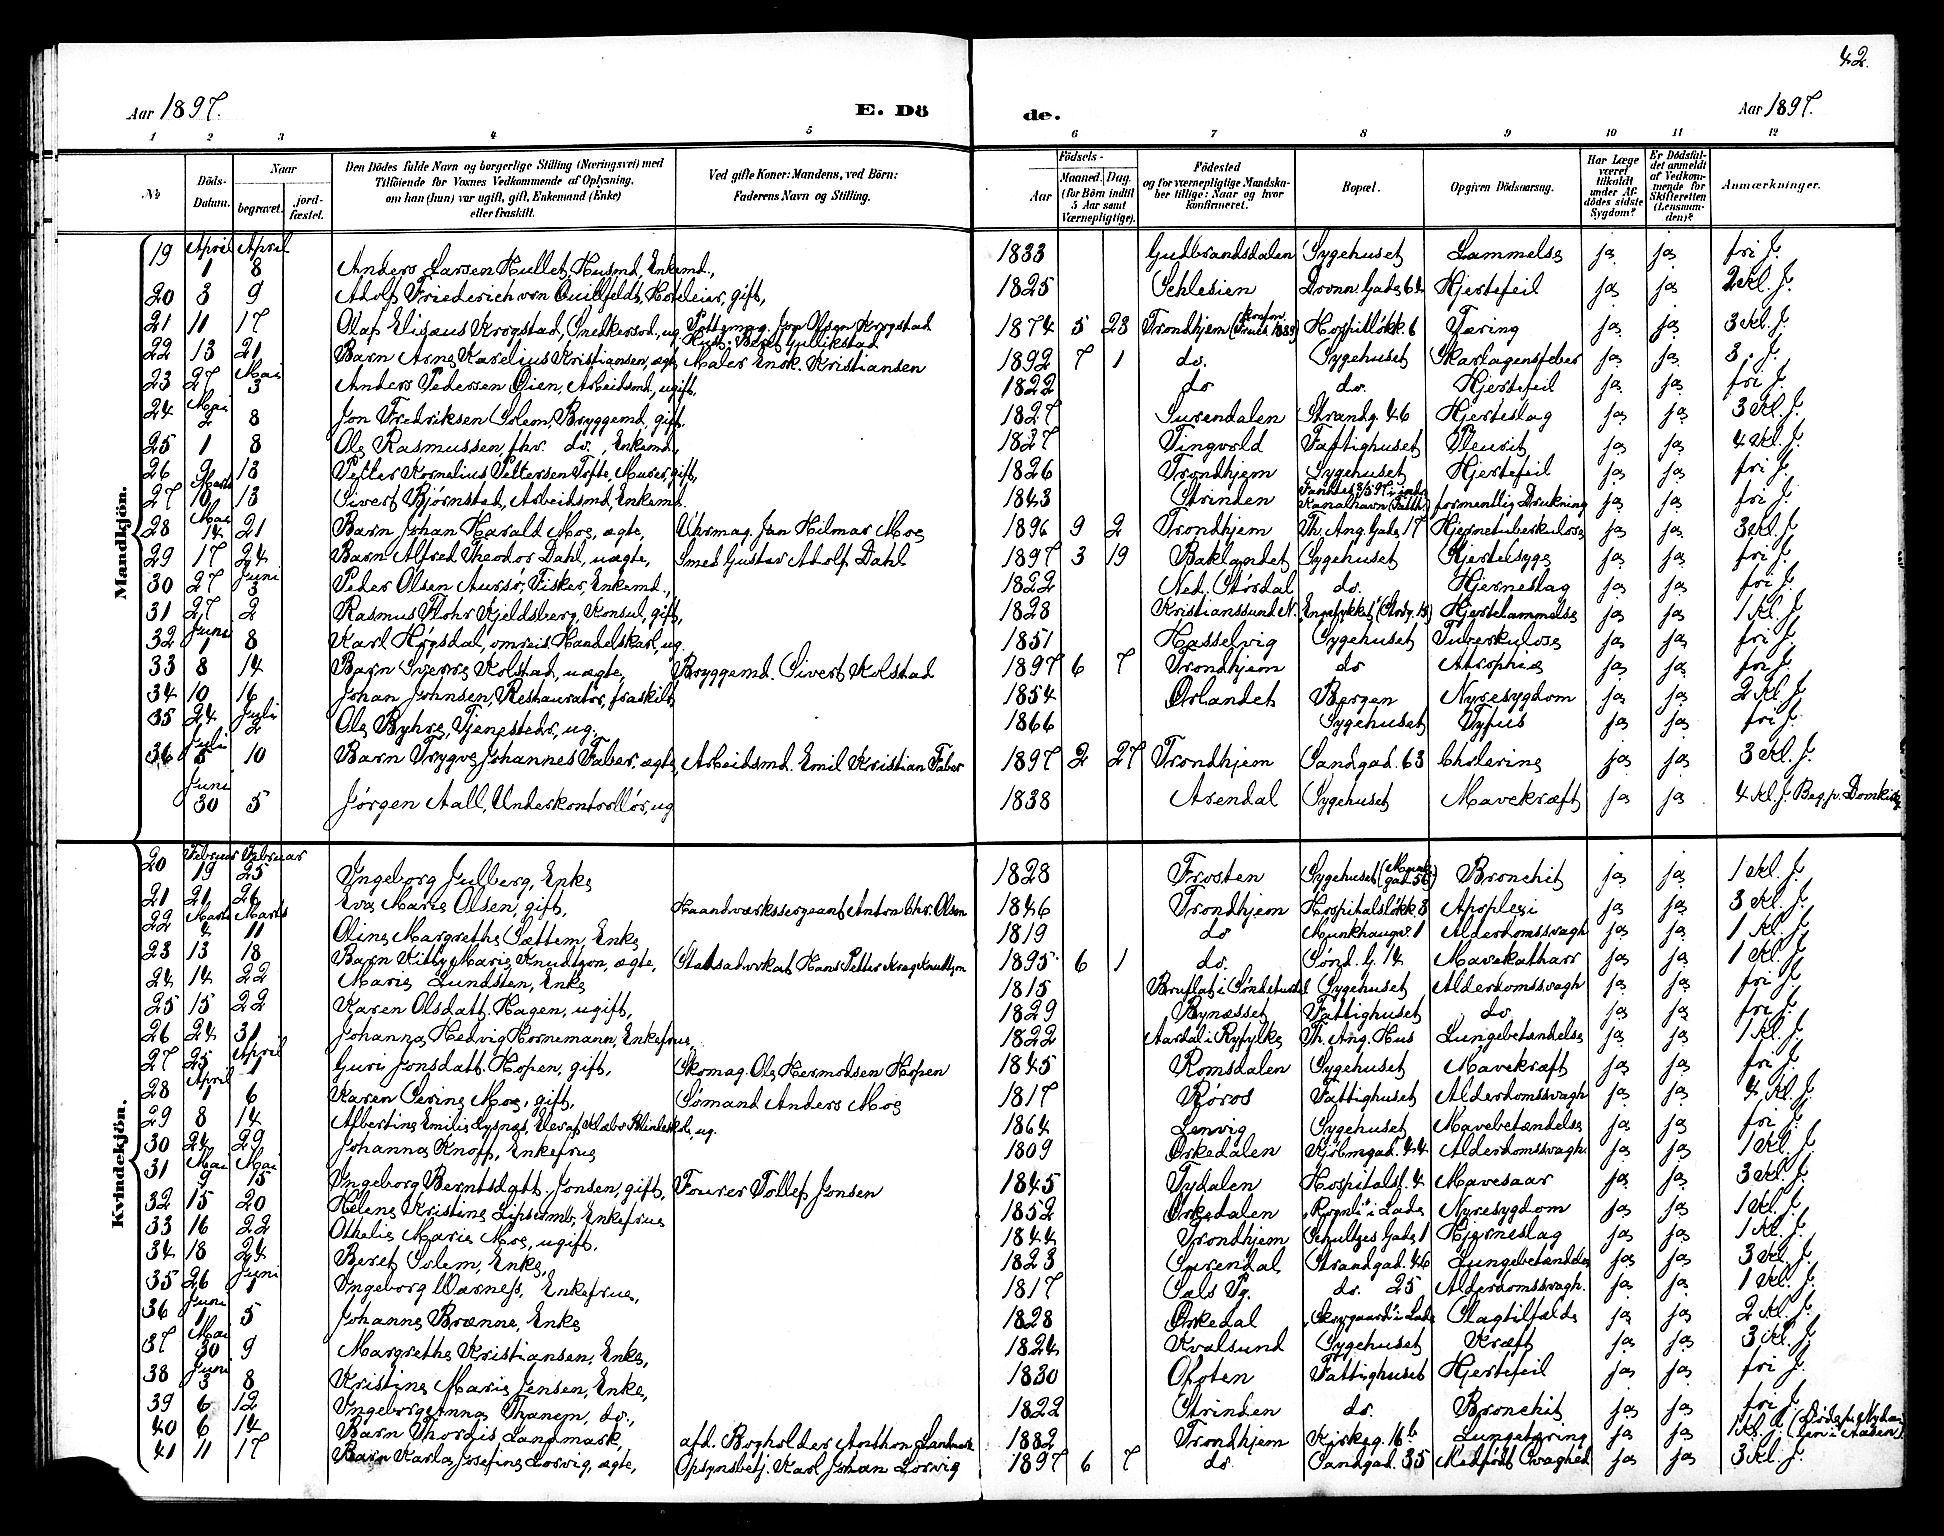 42.
Aar 1897. E. Dö de. Aar 1897.
1 2 3 4 5 6 7 8 9 10 11 12
No Döds-Datum. Naar begravet. jord-fæstet. Den Dödes fulde Navn og borgerlige Stilling (Næringsvei) med Tilföiende for Voxnes Vedkommende af Oplysning, om han (hun) var ugift, gift, Enkemand (Enke) eller fraskilt. Ved gifte Koner: Mandens, ved Börn: Faderens Navn og Stilling. Födsels- Aar Maaned. Dag. (for Börn indtil 5 Aar samt Værnepligtige). Födested og for værnepligtige Mandskaber tillige: Naar og hvor konfirmeret. Bopæl. Opgiven Dödsaarsag. Har Læge været tilkaldt under Afdødes sidste Sygdom? Er Dödsfaldet anmeldt af Vedkommende for Skifteretten (Lensmanden)? Anmærkninger.
Mandkjön.
19 April 1 April 8 Anders Larsen Hullet, Husmd, Enkemd., 1833 Gudbrandsdalen Sygehuset Lammelse ja ja fri J.
20 3 9 Adolf Friederich von Quillfeldt, Hoteleier, gift, 1825 Schlesien Dronn. Gade 64 Hjertefeil ja ja 2 Kl. J.
21 11 17 Olaf Elisæus Krogstad, Snedkersvd, ug. Pottemag. Jon Olsen Krogstad Hust. Beret Gullikstad 1874 5 23 Trondhjem Hospitlökk. 6 Tæring ja ja 3 Kl. J.
22 13 21 Barn Arne Karelius Kristiansen, ægte, Maler Enok Kristiansen 1892 7 1 do. Sygehuset Skarlagensfeber ja ja 3 J.
23 27 Mai 3 Anders Pedersen Öien, Arbeidsmd, ugift, 1822 do do. Hjertefeil ja ja fri J.
24 Mai 2 8 Jon Fredriksen Solem, Bryggemd, gift, 1827 Surendalen Strandg. 46 Hjerteslag ja ja 3 Kl. J.
25 1 8 Ole Rasmussen, fhv. do., Enkemd., 1827 Tingvold Fattighuset Pleurit ja ja 4 Kl. J.
26 9 13 Petter Kornelius Pettersen Tofte, Murer, gift, 1826 Trondhjem Sygehuset Hjertefeil ja ja fri J.
27 Marts 10 13 Sivert Bjørnstad, Arbeidsmd, Enkemd. 1843 Strinden Fundet 8/5 97 i indre Kanalhavn formentlig Drukning ja ja fri J.
28 Mai 14 21 Barn Johan Harald Moe, ægte, Uhrmag. Jan Hilmar Moe 1896 9 2 Trondhjem Th. Ang. Gade 17 Hjernetuberkulose ja ja 3 Kl. J.
29 17 24 Barn Alfred Theodor Dahl, uægte, Smed Gustav Adolf Dahl 1897 3 19 Baklandet Sygehuset Kjertelsyge ja ja fri J.
30 27 Juni 3 Peder Olsen Aursø, Fisker, Enkemd., 1822 Ned. Stördal do. Hjerneslag ja ja fri J.
31 27 2 Rasmus Flohr Kjeldsberg, Konsul, gift, 1828 Kristianssund N. Hjertelammelse ja ja 1 Kl. J.
32 Juni 1 8 Karl Høgsdal, omreis. Handelskarl, ug. 1851 Hasselvig Sygehuset Tuberkulose ja ja fri J.
33 8 14 Barn Sverre Kolstad, uægte, Bryggemd. Sivert Kolstad 1897 6 7 Trondhjem do Atrophie ja ja fri J.
34 10 16 Johan Johnsen, Restauratør, fraskilt, 1854 Örlandet Bergen Nyresygdom ja ja 2 Kl. J.
35 24 Juli 2 Ole Byhre, Tjenestedr, ug. 1866 Sygehuset Tyfus ja ja fri J.
36 Juli 5 10 Barn Trygve Johannes Faber, ægte, Arbeidsmd. Emil Kristian Faber 1897 2 27 Trondhjem Sandgad. 63 Cholerine ja ja 3 Kl. J.
Juni 30 5 Jørgen Aall, Underkontrollør, ug 1838 Arendal Sygehuset Mavekræft ja ja 4 Kl. J. Beg. p. Domkirkeg
Kvindekjön.
20 Februar 19 Februar 25 Ingeborg Julberg, Enke 1828 Frosten Sygehuset Bronchit ja ja 1 Kl. J.
21 21 26 Eva Marie Olsen, gift, Haandværkssergeant Anton Chr. Olsen 1846 Trondhjem Hospitalslökk. 3 Apoplexi ja ja 3 Kl. J.
22 Marts 4 Marts 11 Oline Margrethe Sættem, Enke 1819 do Munkhaugv. 1 Alderdomssvagh ja ja 1 Kl. J.
23 13 18 Barn Kitty Marie Knudtzon, ægte, Statsadvokat Hans Petter Krag Knudtzon 1895 6 1 do. Sond. G. 14 Mavekatharr ja ja 1 Kl. J.
24 14 22 Marie Lundsten, Enke 1815 Bruflat i Söndetureds Sygehuset Alderdomssvagh ja ja fri J.
25 15 22 Karen Olsdatt. Hagen, ugift, 1829 Bynæsset Fattighuset do. ja ja fri J.
26 24 31 Johanne Hedvig Hornemann, Enkefrue, 1822 Aardal i Ryfylke Th. Ang. Hus Lungebetændelse ja ja 1 Kl. J.
27 25 April 1 Guri Jonsdatt. Hopen, gift, Skomag. Ole Hermodsen Hopen 1845 Romsdalen Sygehuset Mavekræft ja ja fri J.
28 April 1 6 Karen Serine Moe, gift, Sømand Anders Moe 1817 Røros Fattighuset Alderdomssvagh ja ja 4 Kl. J.
29 8 14 Albertine Emilie Lysnæs, Elev af Klæbo Blindeskole, ug. 1864 Lenvig Sygehuset Mavebetændelse ja ja fri J.
30 24 29 Johanne Knoff, Enkefrue 1809 Orkedalen Kjöbmgad. 44 Alderdomssvagh. ja ja 1 Kl. J.
31 Mai 9 Mai 15 Ingeborg Berntsdatt. Jonsen, gift, Fourer Tollef Jonsen 1845 Tydalen Hospitalsl. 4 Mavesaar ja ja 3 Kl. J.
32 15 20 Helene Kristine Lipscomb, Enkefrue 1852 Orkedalen „Rognli" i Lade Nyresygdom ja ja 1 Kl. J.
33 16 22 Othelie Marie Moe, ugift, 1844 Trondhjem Schultzes Gade 1 Hjerneslag ja ja 1 Kl. J.
34 18 24 Beret Solem, Enke, 1823 Surendal Strandgad. 46 Lungebetændelse ja ja 3 Kl. J.
35 26 Juni 1 Ingeborg Darness, Enkefrue, 1817 Sals Pg. do. 25 Alderdomssvagh. ja ja 1 Kl. J.
36 Juni 1 5 Johanne Brænne, Enke 1828 Orkedal „Skovgaard" i Lade Slagtilfælde ja ja 2 Kl. J.
37 Mai 30 9 Margrethe Kristiansen, Enke, 1824 Kvalsund Sygehuset Kræft ja ja 3 Kl. J.
38 Juni 3 8 Kristine Marie Jensen, Enke, 1830 Ofoten Fattighuset Hjertefeil ja ja fri J.
39 6 12 Ingeborg Anna Thanem, do., 1822 Strinden do. Bronchit ja ja fri J.
40 6 14 Barn Thordis Landmark, afd. Bogholder Anthon Landmark 1882 Trondhjem Kirkeg. 16b Lungetæring ja ja 1 Kl. J.
41 11 17 Barn Karla Josefine Lorvig, ægte, Opsynsbetj. Karl Johan Lorvig 1897 6 7 do. Sandgad. 35 Medfödt Svaghed ja ja 3 Kl. J.